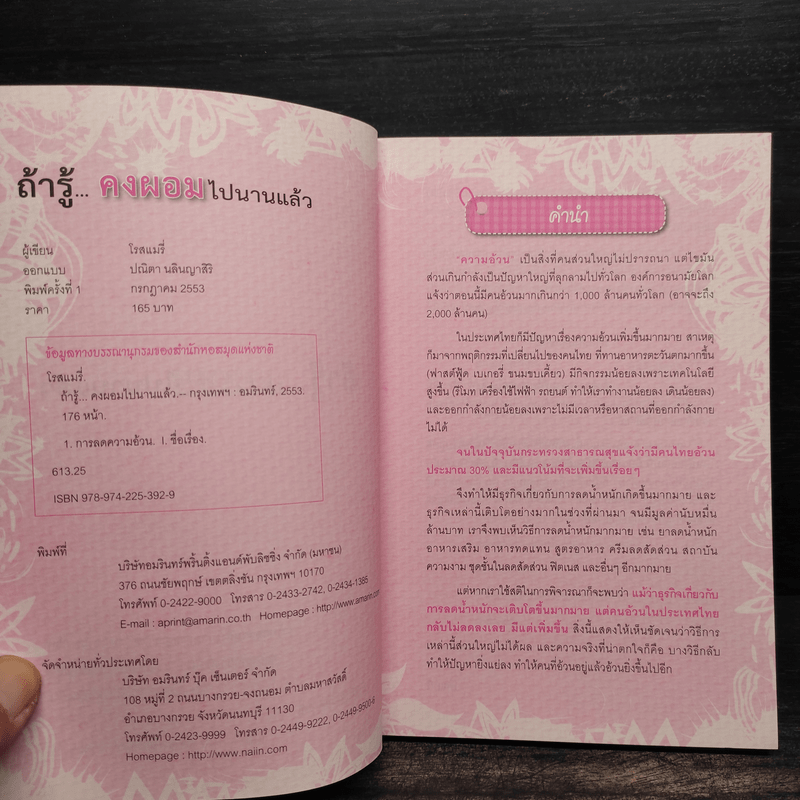 ถ้ารู้... คงผอมไปนานแล้ว
ผู้เขียน โรสแมรี่
ออกแบบ ปณิตา นลินญาสิริ
พิมพ์ครั้งที่ 1 กรกฎาคม 2553
ราคา 165 บาท
ข้อมูลทางบรรณานุกรมของสำนักหอสมุดแห่งชาติ
โรสแมรี่.
ถ้ารู้... คงผอมไปนานแล้ว.-- กรุงเทพฯ : อมรินทร์, 2553.
176 หน้า.
1. การลดความอ้วน. I. ชื่อเรื่อง.
613.25
ISBN 978-974-225-392-9
พิมพ์ที่
บริษัทอมรินทร์พริ้นติ้งแอนด์พับลิชชิ่ง จำกัด (มหาชน)
376 ถนนชัยพฤกษ์ เขตตลิ่งชัน กรุงเทพฯ 10170
โทรศัพท์ 0-2422-9000 โทรสาร 0-2433-2742, 0-2434-1385
E-mail : aprint@amarin.co.th Homepage : http://www.amarin.co
จัดจำหน่ายทั่วประเทศโดย
บริษัท อมรินทร์ บุ๊ค เซ็นเตอร์ จำกัด
108 หมู่ที่ 2 ถนนบางกรวย-จงถนอม ตำบลมหาสวัสดิ์
อำเภอบางกรวย จังหวัดนนทบุรี 11130
โทรศัพท์ 0-2423-9999 โทรสาร 0-2449-9222, 0-2449-9500-6
Homepage : http://www.naiin.com
คำนำ
"ความอ้วน" เป็นสิ่งที่คนส่วนใหญ่ไม่ปรารถนา แต่ไขมัน
ส่วนเกินกำลังเป็นปัญหาใหญ่ที่ลุกลามไปทั่วโลก องค์การอนามัยโลก
แจ้งว่าตอนนี้มีคนอ้วนมากเกินกว่า 1,000 ล้านคนทั่วโลก (อาจจะถึง
2,000 ล้านคน)
ในประเทศไทยก็มีปัญหาเรื่องความอ้วนเพิ่มขึ้นมากมาย สาเหตุ
ก็มาจากพฤติกรรมที่เปลี่ยนไปของคนไทย ที่ทานอาหารตะวันตกมากขึ้น
(ฟาสต์ฟู้ด เบเกอรี่ ขนมขบเคี้ยว) มีกิจกรรมน้อยลงเพราะเทคโนโลยี
สูงขึ้น (รีโมท เครื่องใช้ไฟฟ้า รถยนต์ ทำให้เราทำงานน้อยลง เดินน้อยลง)
และออกกำลังกายน้อยลงเพราะไม่มีเวลาหรือหาสถานที่ออกกำลังกาย
ไม่ได้
จนในปัจจุบันกระทรวงสาธารณสุขแจ้งว่ามีคนไทยอ้วน
ประมาณ 30% และมีแนวโน้มที่จะเพิ่มขึ้นเรื่อยๆ
จึงทำให้มีธุรกิจเกี่ยวกับการลดน้ำหนักเกิดขึ้นมากมาย และ
ธุรกิจเหล่านี้เติบโตอย่างมากในช่วงที่ผ่านมา จนมีมูลค่านับหมื่น
ล้านบาท เราจึงพบเห็นวิธีการลดน้ำหนักมากมาย เช่น ยาลดน้ำหนัก
อาหารเสริม อาหารทดแทน สูตรอาหาร ครีมลดสัดส่วน สถาบัน
ความงาม ชุดชั้นในลดสัดส่วน ฟิตเนส และอื่นๆ อีกมากมาย
แต่หากเราใช้สติในการพิจารณาก็จะพบว่า แม้ว่าธุรกิจเกี่ยวกับ
การลดน้ำหนักจะเติบโตขึ้นมากมาย แต่คนอ้วนในประเทศไทย
กลับไม่ลดลงเลย มีแต่เพิ่มขึ้น สิ่งนี้แสดงให้เห็นชัดเจนว่าวิธีการ
เหล่านี้ส่วนใหญ่ไม่ได้ผล และความจริงที่น่าตกใจก็คือ บางวิธีกลับ
ทำให้ปัญหายิ่งแย่ลง ทำให้คนที่อ้วนอยู่แล้วอ้วนยิ่งขึ้นไปอีก